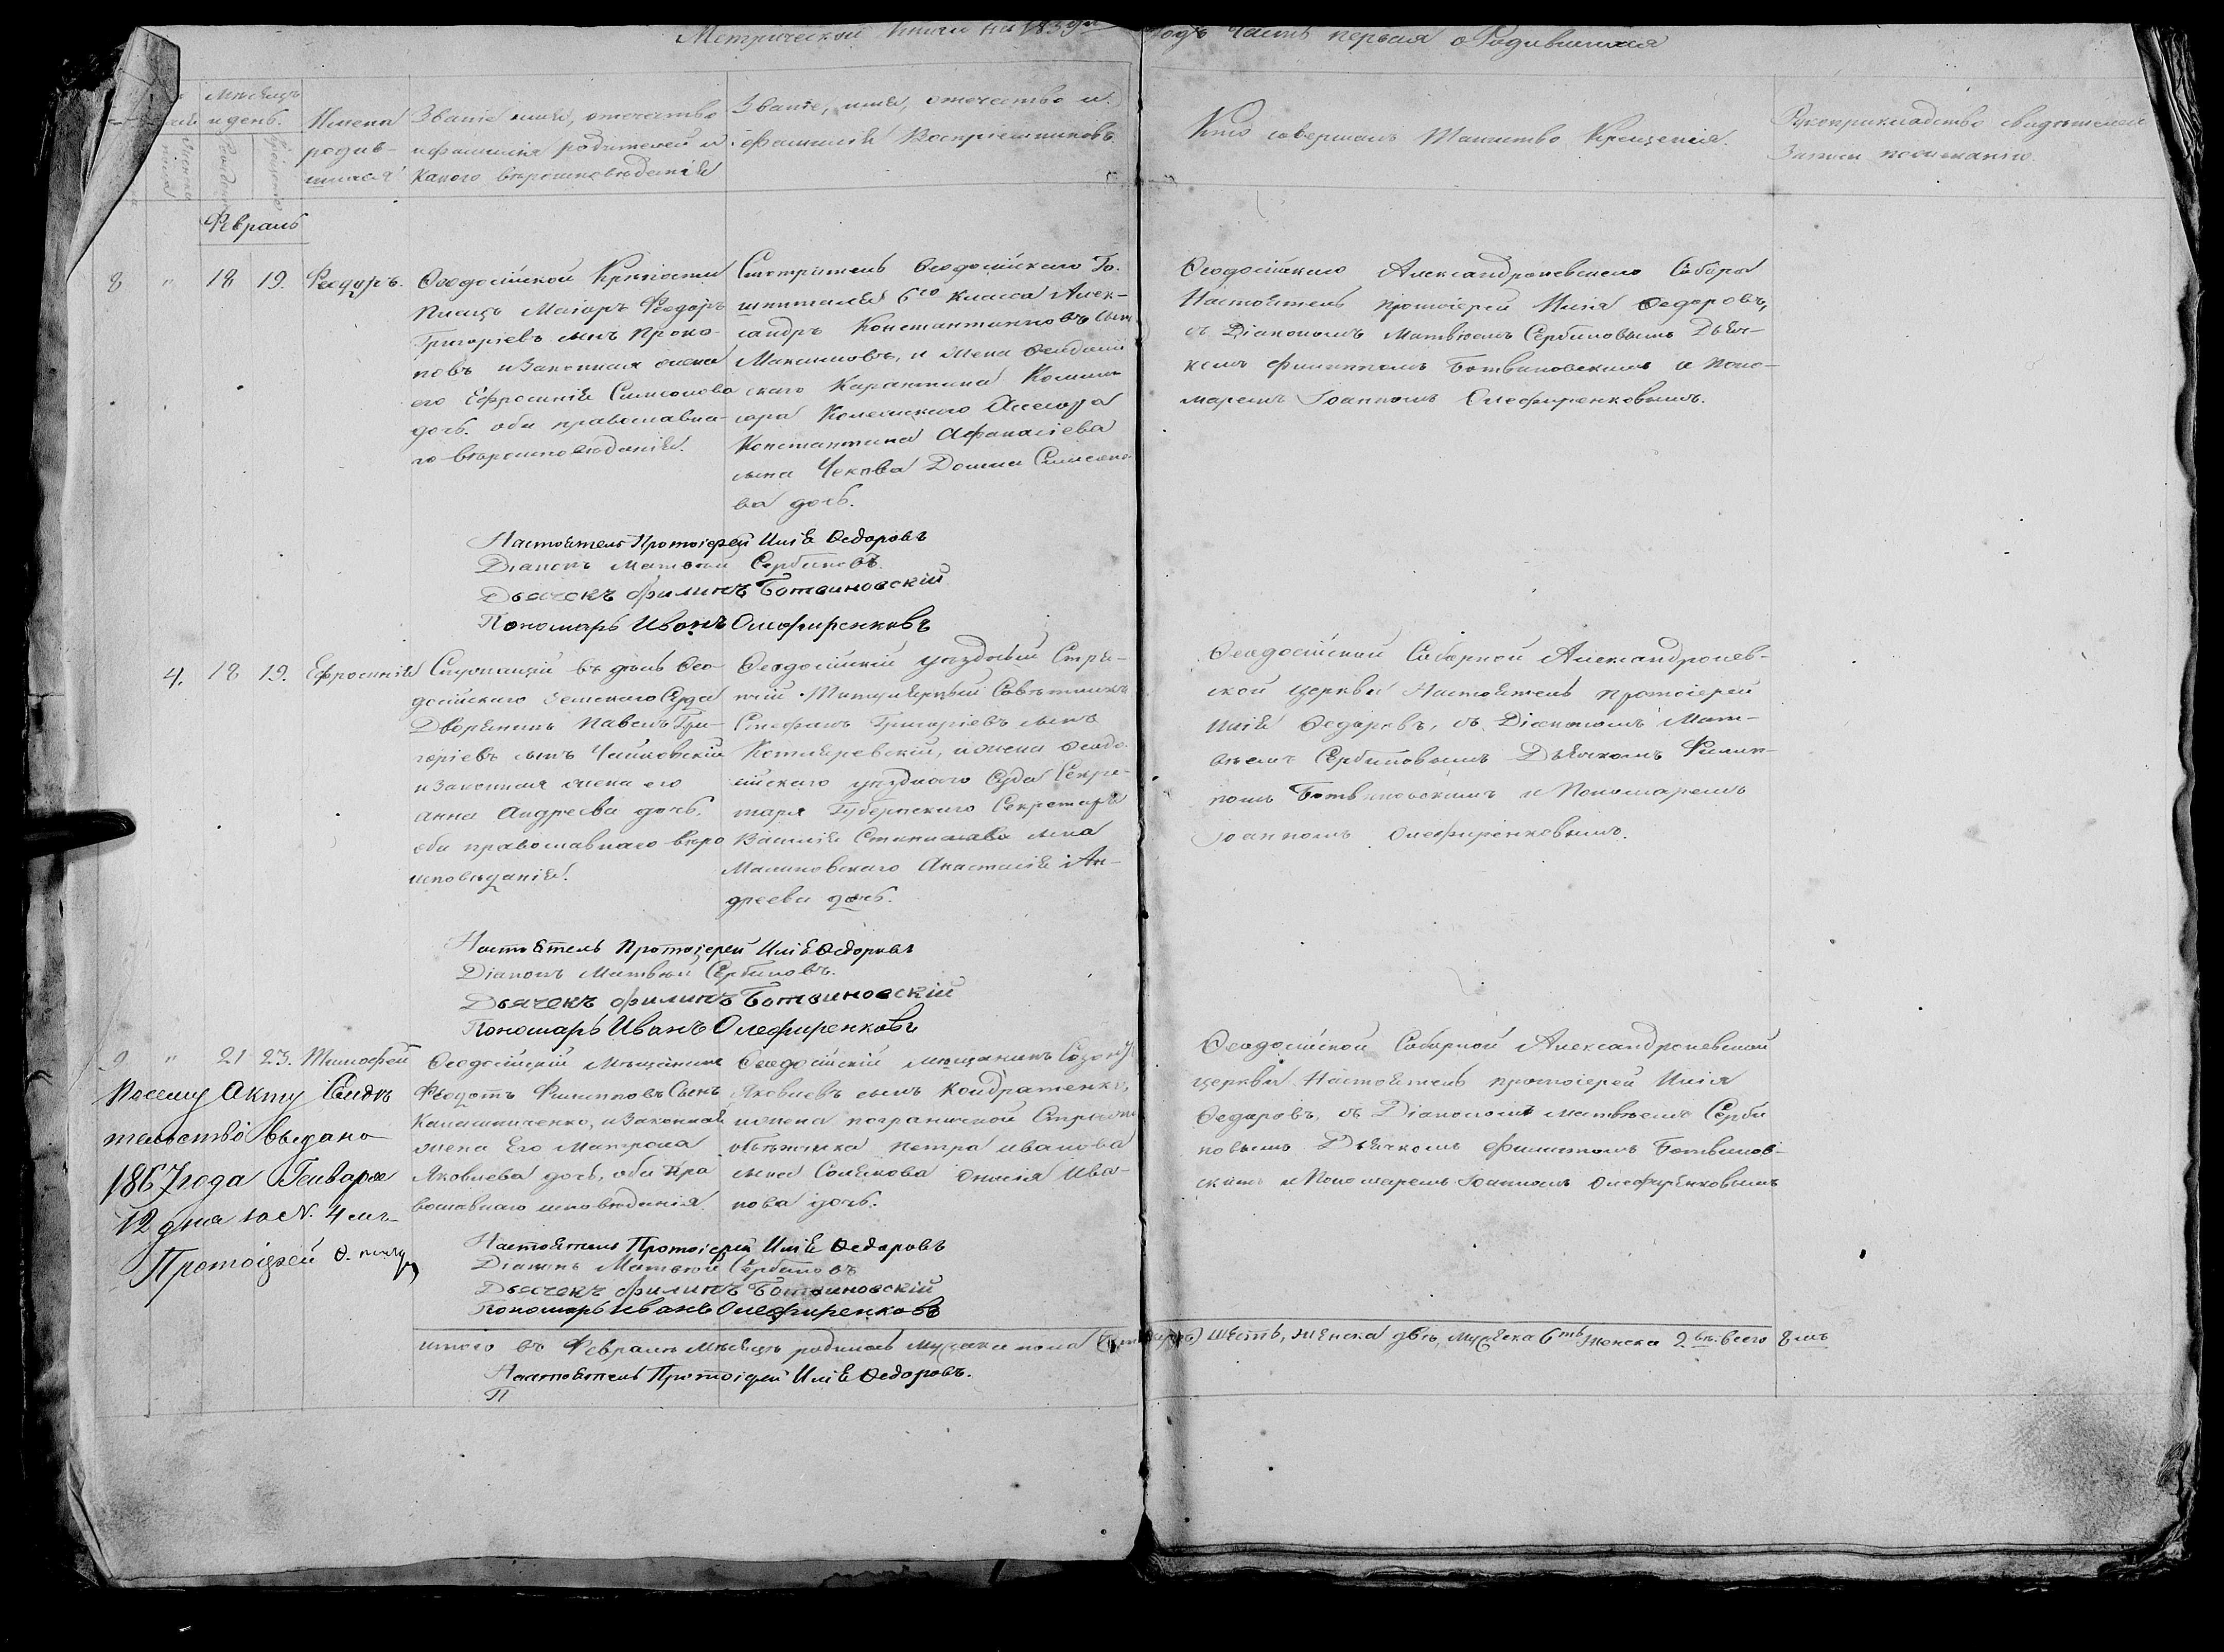 Метрической Книги на 1839й годъ Часть первая о Родившихся
Мѣсяцъ
и день.
Имена
родив-
шихся
Званіе имя, отечество
и фамилія родителей и
какого вѣроисповѣданія
Званіе, имя, отечество и
фамилія Воспріемниковъ
Кто совершалъ Таинство Крещенія.
Рукоприкладство свидѣтелей
Записи по желанію.
Февраль
8 " 18 19. Феодоръ.
Ѳеодосійской Крѣпости
Плацъ Маіоръ Феодоръ
Григоріевъ сынъ Проко-
повъ и Законная жена
его Ефросинія Симеонова
дочь. оба православна-
го вѣроисповѣданія.
Смотритель Ѳеодосійскаго Го-
шпиталя 6го класса Алек-
сандръ Константиновъ сынъ
Максимовъ, и жена Ѳеодосій
скаго Карантина Комми
сара Колежскаго Асессора
Константина Афанасіева
сына Чекова Домна Симеоно
ва дочь.
Ѳеодосійскаго Александроневскаго Собора
Настоятель протоіерей Илія Ѳедоровъ,
съ Діакономъ Матвѣемъ Сербиновымъ Дьяч-
комъ Филиппомъ Ботвиновскимъ и Поно-
маремъ Іоанномъ Олефиренковымъ.
Настоятель Протоіерей Илія Ѳедоровъ
Діаконъ Матвѣй Сербиновъ.
Дьячекъ Филипъ Ботвиновскій
Пономарь Иванъ Олефиренковъ
4. 18 19. Ефросинія
Служащій въ домѣ Ѳео-
досійскаго Земскаго Суда
Дворянинъ Павелъ Гри-
горіевъ сынъ Чайковскій
и Законная жена его
Анна Андреева дочь,
оба православнаго вѣро
исповѣданія.
Ѳеодосійскій уѣздный Стря-
пчій Титулярный Совѣтникъ
Стефанъ Григоріевъ сынъ
Котляревскій, и жена Ѳеодо
сійскаго уѣзднаго Суда Секре-
таря Губернскаго Секретаря
Василія Станислава сына
Малиновскаго Анастасія Ан-
дреева дочь.
Ѳеодосійской Соборной Александронев-
ской церкви Настоятель протоіерей
Илія Ѳедоровъ, съ Діакономъ Мат-
вѣемъ Сербиновымъ Дьячкомъ Филип-
помъ Ботвиновскимъ и Пономаремъ
Іоанномъ Олефиренковымъ.
Настоятель Протоіерей Илія Ѳедоровъ
Діаконъ Матвѣй Сербиновъ.
Дьячекъ Филипъ Ботвиновскій
Пономарь Иванъ Олефиренковъ
9 " 21 23. Тимофей
Ѳеодосійскій Мѣщанинъ
Феодотъ Филипповъ Сынъ
Калашниченко, и Законная
жена Его Матрона
Яковлева дочь, оба пра
вославнаго исповѣданія.
Ѳеодосійскій мѣщанинъ Созонъ
Яковлевъ сынъ Кондратенко,
и жена пограничной Стражи
объѣзчика Петра Иванова
сына Солякова Ѳеклія Ива-
нова дочь.
Ѳеодосійской Соборной Александроневской
церкви Настоятель протоіерей Илія
Ѳедоровъ, съ Діакономъ Матвѣемъ Серби
новымъ Дьячкомъ Филиппомъ Ботвинов-
скимъ и Пономаремъ Іоанномъ Олефиренковымъ
По сему Акту Свидѣ
тельство выдано
1867 года Генваря
12 дня за N. 4мъ
Протоіерей
Настоятель Протоіерей Илія Ѳедоровъ
Діаконъ Матвѣй Сербиновъ
Дьячекъ Филипъ Ботвиновскій
Пономарь Иванъ Олефиренковъ
итого въ Февралѣ мѣсяцѣ родилось Мужеска пола шесть, женска двѣ, Мужеска 6ть Женска 2вѣ. всего 8мъ
Настоятель Протоіерей Илія Ѳедоровъ.
П